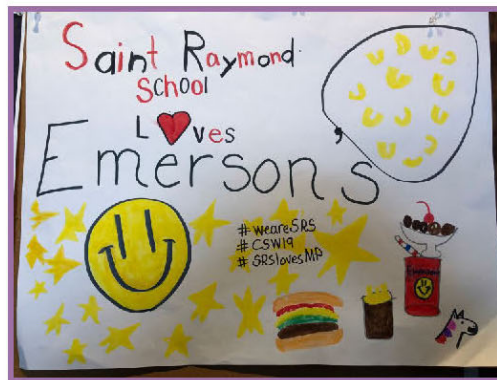 Saint Raymond
School
Loves
Emerson's
#weareSRS
#CSW19
#SRSlovesMP